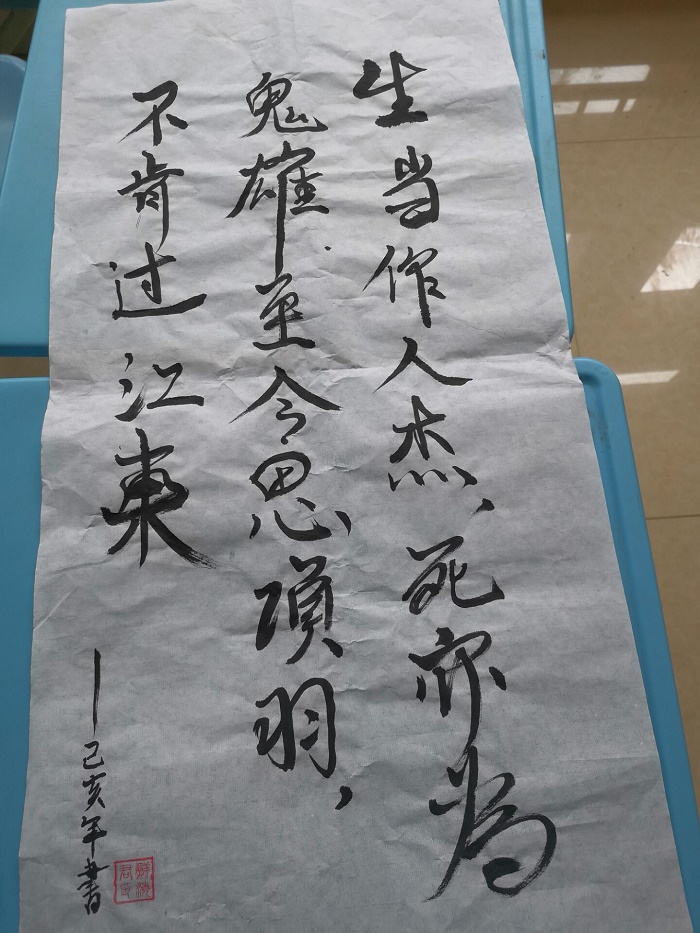 生当作人杰,死亦为
鬼雄.至今思項羽,
不肯过江東
—己亥年书